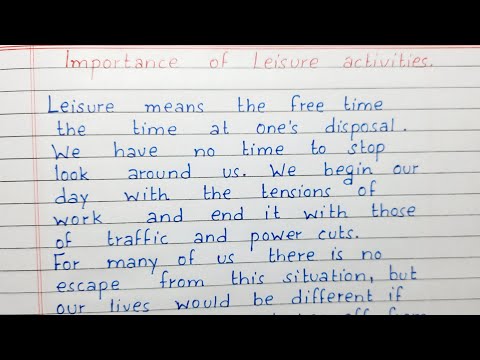 Importance of Leisure activities.
Leisure means the free time
the time at one's disposal.
We have no time to stop
look around us. We begin our
day with the tensions of
work and end it with those
of traffic and power cuts.
For many of us there is no
escape from this situation, but
our lives would be different if